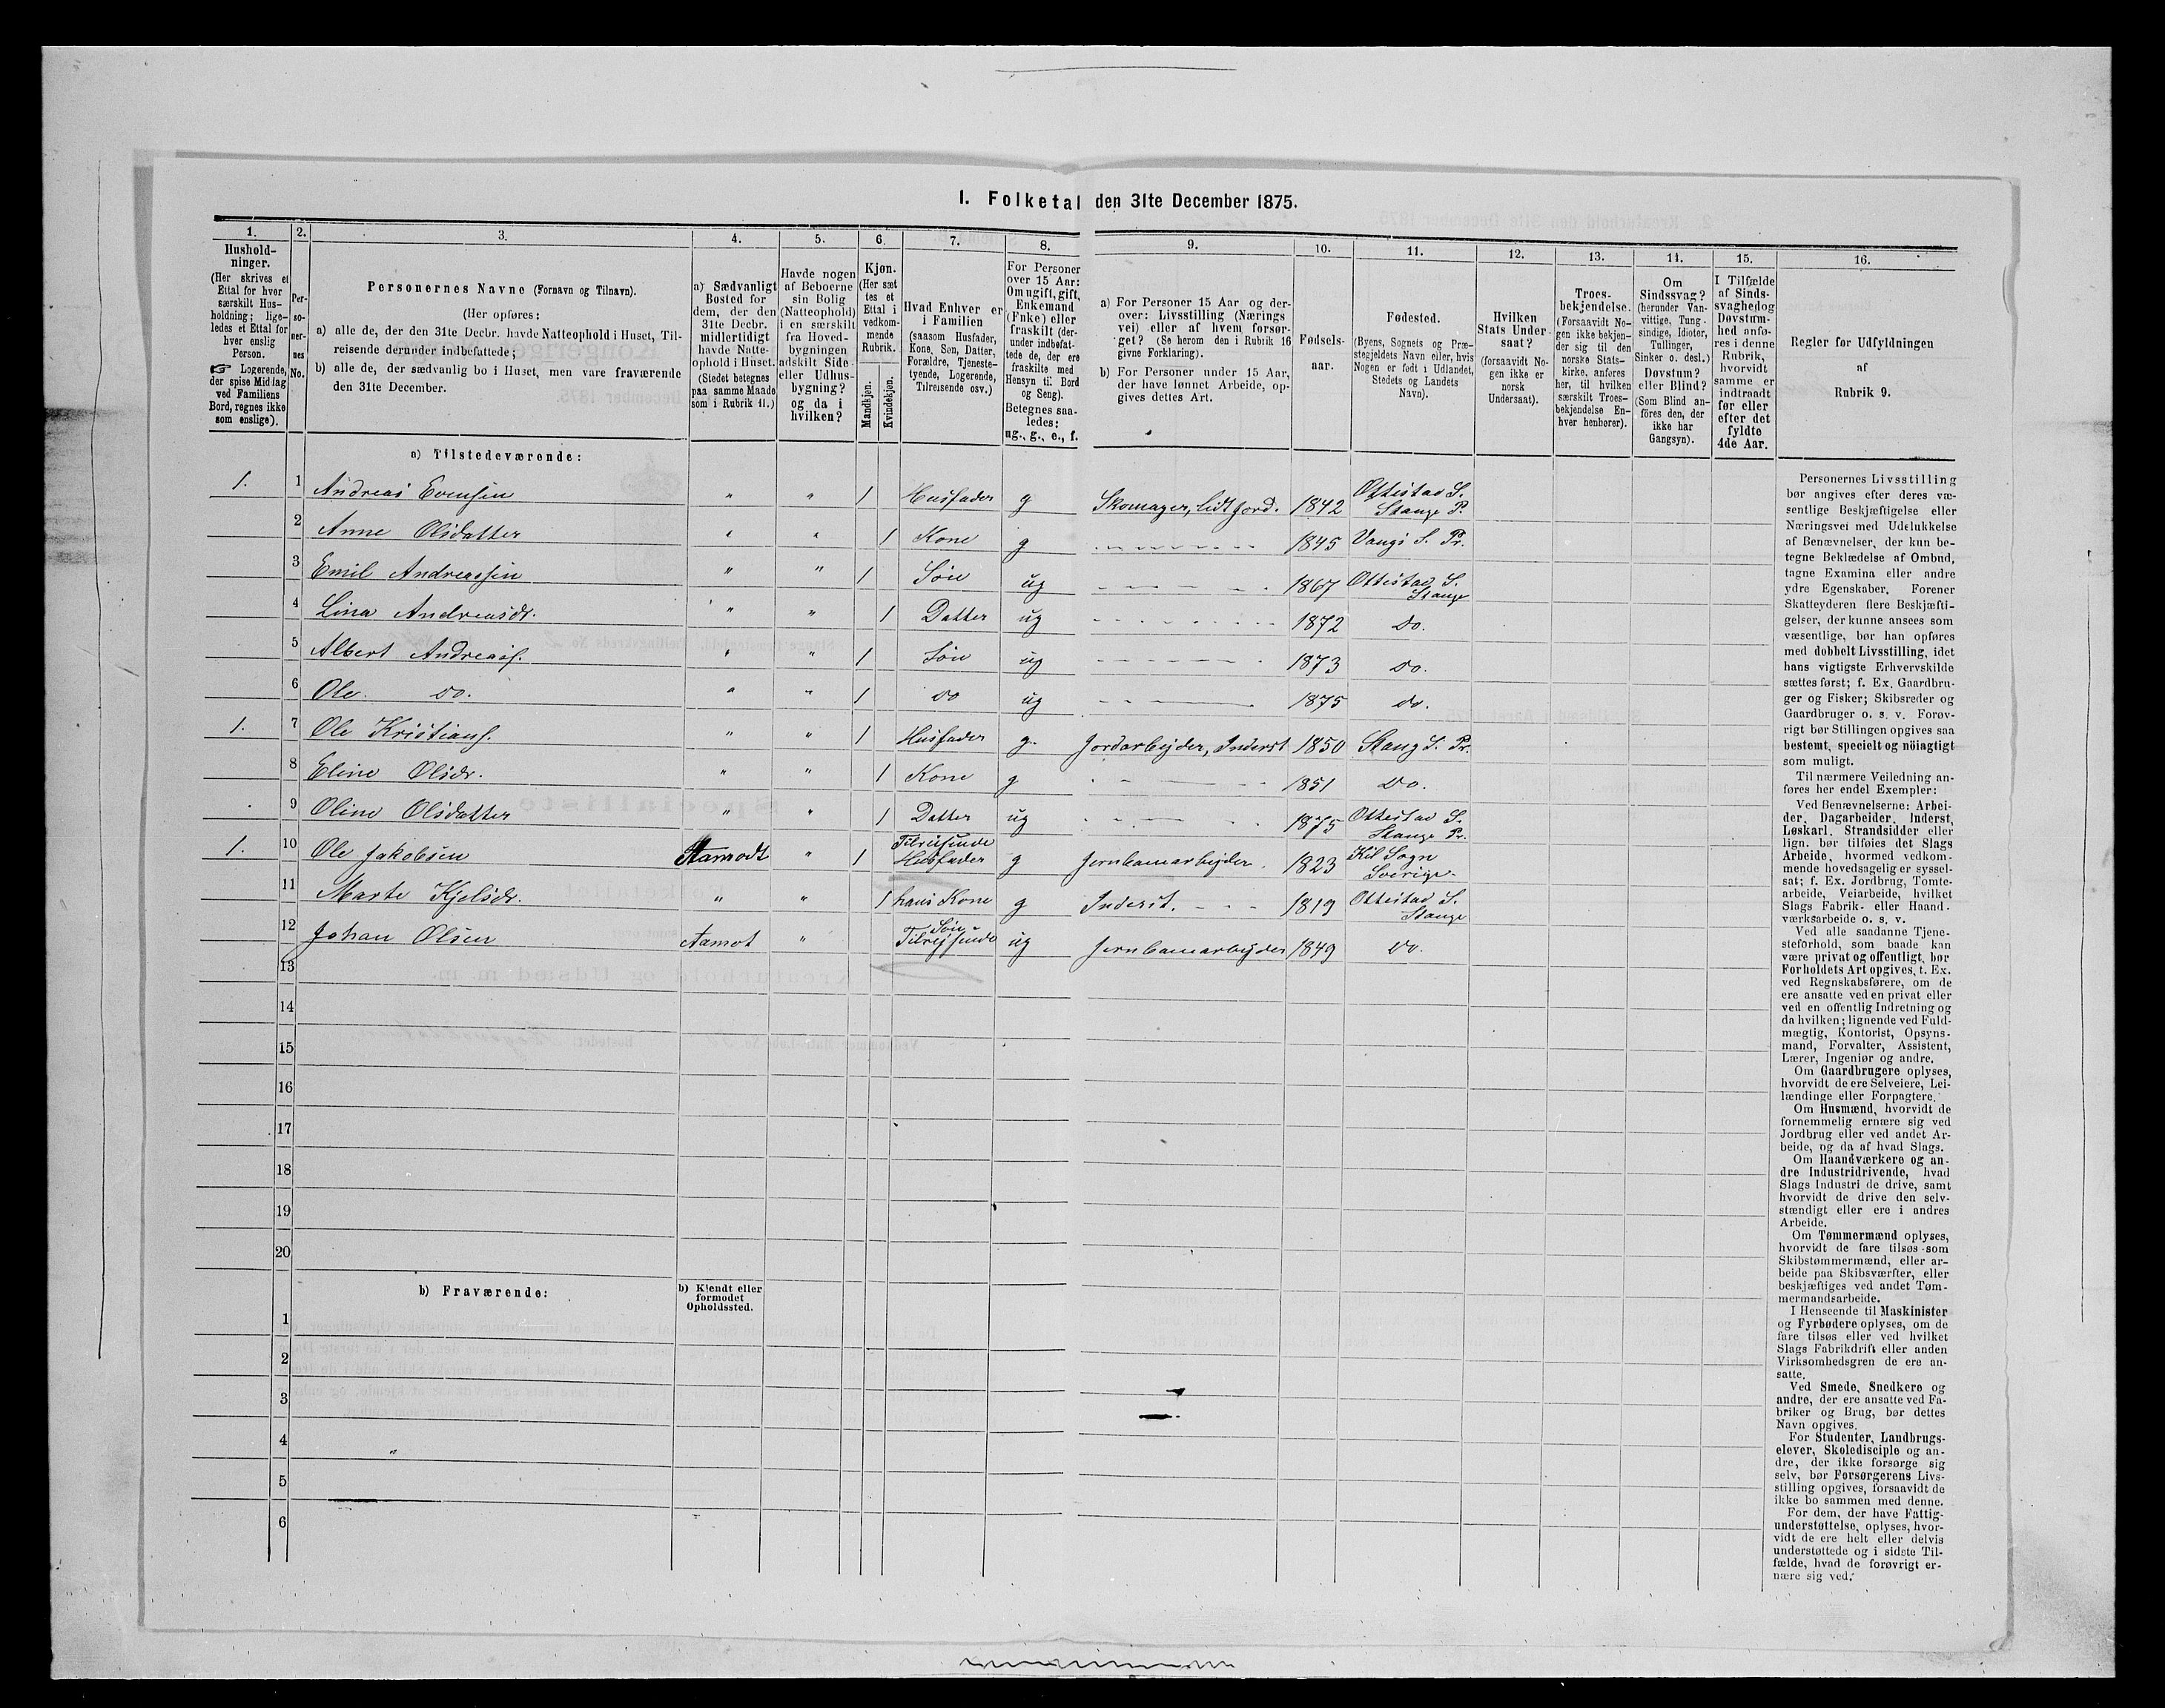 1. Folketal den 31te December 1875.
1. 2. 3. 4. 5. 6. 7. 8. 9. 10. 11. 12. 13. 14. 15. 16.
Hushold-
ninger.
(Her skrives et
Ettal for hver
særskilt Hus-
holdning; lige-
ledes et Ettal for
hver enslig
Person.
☞ Logerende,
der spise Middag
ved Familiens
Bord, regnes ikke
som enslige).
Per-
so-
ner-
nes
No.
Personernes Navne (Fornavn og Tilnavn).
(Her opføres:
a) alle de, der den 31te Decbr. havde Natteophold i Huset, Til-
reisende derunder indbefattede;
b) alle de, der sædvanlig bo i Huset, men vare fraværende
den 31te December.
a) Sædvanligt
Bosted for
dem, der den
31te Decbr.
midlertidigt
havde Natte-
ophold i Huset.
(Stedet betegnes
paa samme Maade
som i Rubrik 11.)
Havde nogen
af Beboerne
sin Bolig
(Natteophold)
i en særskilt
fra Hoved-
bygningen
adskilt Side-
eller Udhus-
bygning?
og da i
hvilken?
Kjøn.
(Her sæt
tes et
Ettal i
vedkom-
mende
Rubrik.
Mandkjøn.
Kvindekjøn.
Hvad Enhver er
i Familien
(saasom Husfader,
Kone, Søn, Datter,
Forældre, Tjeneste-
tyende, Logerende,
Tilreisende osv.)
For Personer
over 15 Aar:
Om ugift, gift,
Enkemand
(Enke) eller
fraskilt (der-
under indbefat-
tede de, der ere
fraskilte med
Hensyn til Bord
og Seng).
Betegnes saa-
ledes:
ug., g., e., f.
a) For Personer 15 Aar og der-
over: Livsstilling (Nærings
vei) eller af hvem forsør-
get? (Se herom den i Rubrik 16
givne Forklaring).
b) For Personer under 15 Aar,
der have lønnet Arbeide, op-
gives dettes Art.
Fødsels-
aar.
Fødested.
(Byens, Sognets og Præ-
stegjeldets Navn eller, hvis
Nogen er født i Udlandet,
Stedets og Landets
Navn).
Hvilken
Stats Under-
saat?
(forsaavidt No-
gen ikke er
norsk
Undersaat).
Troes-
bekjendelse.
(Forsaavidt No-
gen ikke bekjen-
der sig til den
norske Stats-
kirke, anføres
her, til hvilken
særskilt Troes-
bekjendelse En-
hver henhører).
Om
Sindssvag?
(herunder Van-
vittige, Tung-
sindige, Idioter,
Tullinger,
Sinker o. desl.)
Døvstum?
eller Blind?
(Som Blind an-
føres den, der
ikke har
Gangsyn).
I Tilfælde
af Sinds-
svaghed og
Døvstum-
hed anfø-
res i denne
Rubrik,
hvorvidt
samme er
indtraadt
før eller
efter det
fyldte
4de Aar.
Regler for Udfyldningen
af
Rubrik 9.
a) Tilstedeværende:
1. 1 Andreas Evensen " " 1 Husfader g Skomager, lidt Jord. 1842 Ottestad S. Stange P.
2 Anne Olsdatter " " 1 Kone g 1845 Vangs S. Pr.
3 Emil Andreassen " " 1 Søn ug 1867 Ottestad S. Stange
4 Lina Andreasdr. " " 1 Datter ug 1872 Do.
5 Albert Andreass. " " 1 Søn ug 1873 do.
6 Ole do. " " 1 do ug 1875 do.
1. 7 Ole Kristians. " " 1 Husfader g. Jordarbejder, Inderst 1850 Stang S. Pr.
8 Eline Olsdr. " " 1 Kone g 1851 Do.
9 Oline Olsdatter " " 1 Datter ug 1875 Ottestad S. Stange Pr.
1. 10 Ole Jakobsen Aamodt " 1 Tilreisende Husfader g Jernbanearbejder. 1823 Kil Sogn Sverige.
11 Marte Kjelsdr. " " 1 hans Kone g Inderst. 1819 Ottestad S. Stange
12 Johan Olsen Aamot " Søn Tilrejsende ug Jernbanearbejder 1849 Do.
13
14
15
16
17
18
19
20
b) Fraværende:
b) Kjendt eller
formodet
Opholdssted.
1
2
3
4
5
6
Personernes Livsstilling
bør angives efter deres væ-
sentlige Beskjæftigelse eller
Næringsvei med Udelukkelse
af Benævnelser, der kun be-
tegne Beklædelse af Ombud,
tagne Examina eller andre
ydre Egenskaber. Forener
Skatteyderen flere Beskjæfti-
gelser, der kunne ansees som
væsentlige, bør han opføres
med dobbelt Livsstilling, idet
hans vigtigste Erhvervskilde
sættes først; f. Ex. Gaardbru-
ger og Fisker; Skibsreder og
Gaardbruger o. s. v. Forøv-
rigt bør Stillingen opgives saa
bestemt, specielt og nöiagtigt
som muligt.
Til nærmere Veiledning an-
føres her endel Exempler:
Ved Benævnelserne: Arbei-
der, Dagarbeider, Inderst,
Løskarl, Strandsidder eller
lign. bør tilføies det Slags
Arbeide, hvormed vedkom-
mende hovedsagelig er syssel-
sat; f. Ex. Jordbrug, Tomte-
arbeide, Veiarbeide, hvilket
Slags Fabrik- eller Haand-
værksarbeide o. s. v.
Ved alle saadanne Tjene-
steforhold, som baade kan
være privat og offentligt, bør
Forholdets Art opgives, t. Ex.
ved Regnskabsførere, om de
ere ansatte ved en privat eller
ved en offentlig Indretning og
da hvilken; lignende ved Fuld-
mægtig, Kontorist, Opsyns-
mand, Forvalter, Assistent,
Lærer, Ingeniør og andre.
Om Gaardbrugere oplyses,
hvorvidt de ere Selveiere, Lei-
lændinge eller Forpagtere.
Om Husmænd, hvorvidt de
fornemmelig ernære sig ved
Jordbrug eller ved andet Ar-
beide, og da af hvad Slags.
Om Haandværkere og an-
dre Industridrivende, hvad
Slags Industri de drive, samt
hvorvidt de drive den selv-
stændigt eller ere i andres
Arbeide.
Om Tømmermænd oplyses,
hvorvidt de fare tilsøs som
Skibstømmermænd, eller ar-
beide paa Skibsværfter, eller
beskjæftiges ved andet Tøm-
mermandsarbeide.
I Henseende til Maskinister
og Fyrbødere oplyses, om de
fare tilsøs eller ved hvilket
Slags Fabrikdrift eller anden
Virksomhedsgren de ere an-
satte.
Ved Smede, Snedkere og
andre, der ere ansatte ved Fa-
briker og Brug, bør dettes
Navn opgives.
For Studenter, Landbrugs-
elever, Skoledisciple og an-
dre, der ikke forsørge sig
selv, bør Forsørgerens Livs-
stilling opgives, forsaavidt de
ikke bo sammen med denne.
For dem, der have Fattig-
understøttelse, oplyses, hvor-
vidt de ere helt eller delvis
understøttede og i sidste Til-
fælde, hvad de forøvrigt er-
nære sig ved.